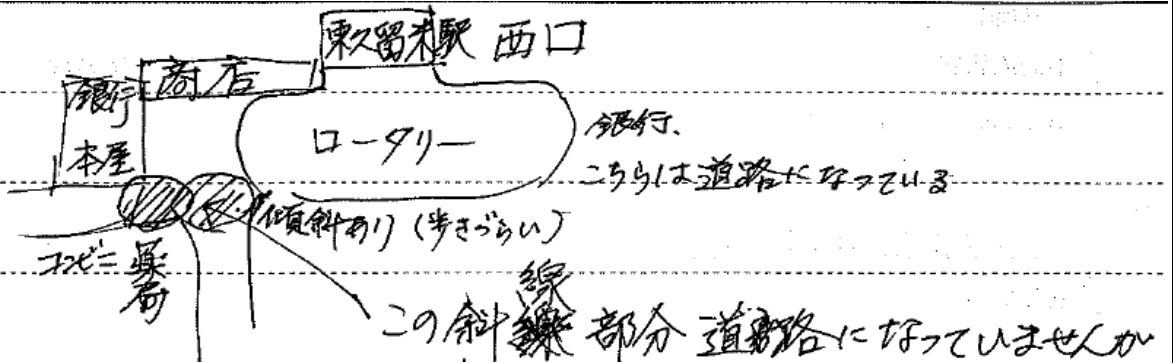 東久留米駅 西口
商店
銀行
本屋
ロータリー
銀行、
こちらは道路になっている
傾斜あり(歩きづらい)
コンビニ
薬局
この斜線部分 道路になっていませんか